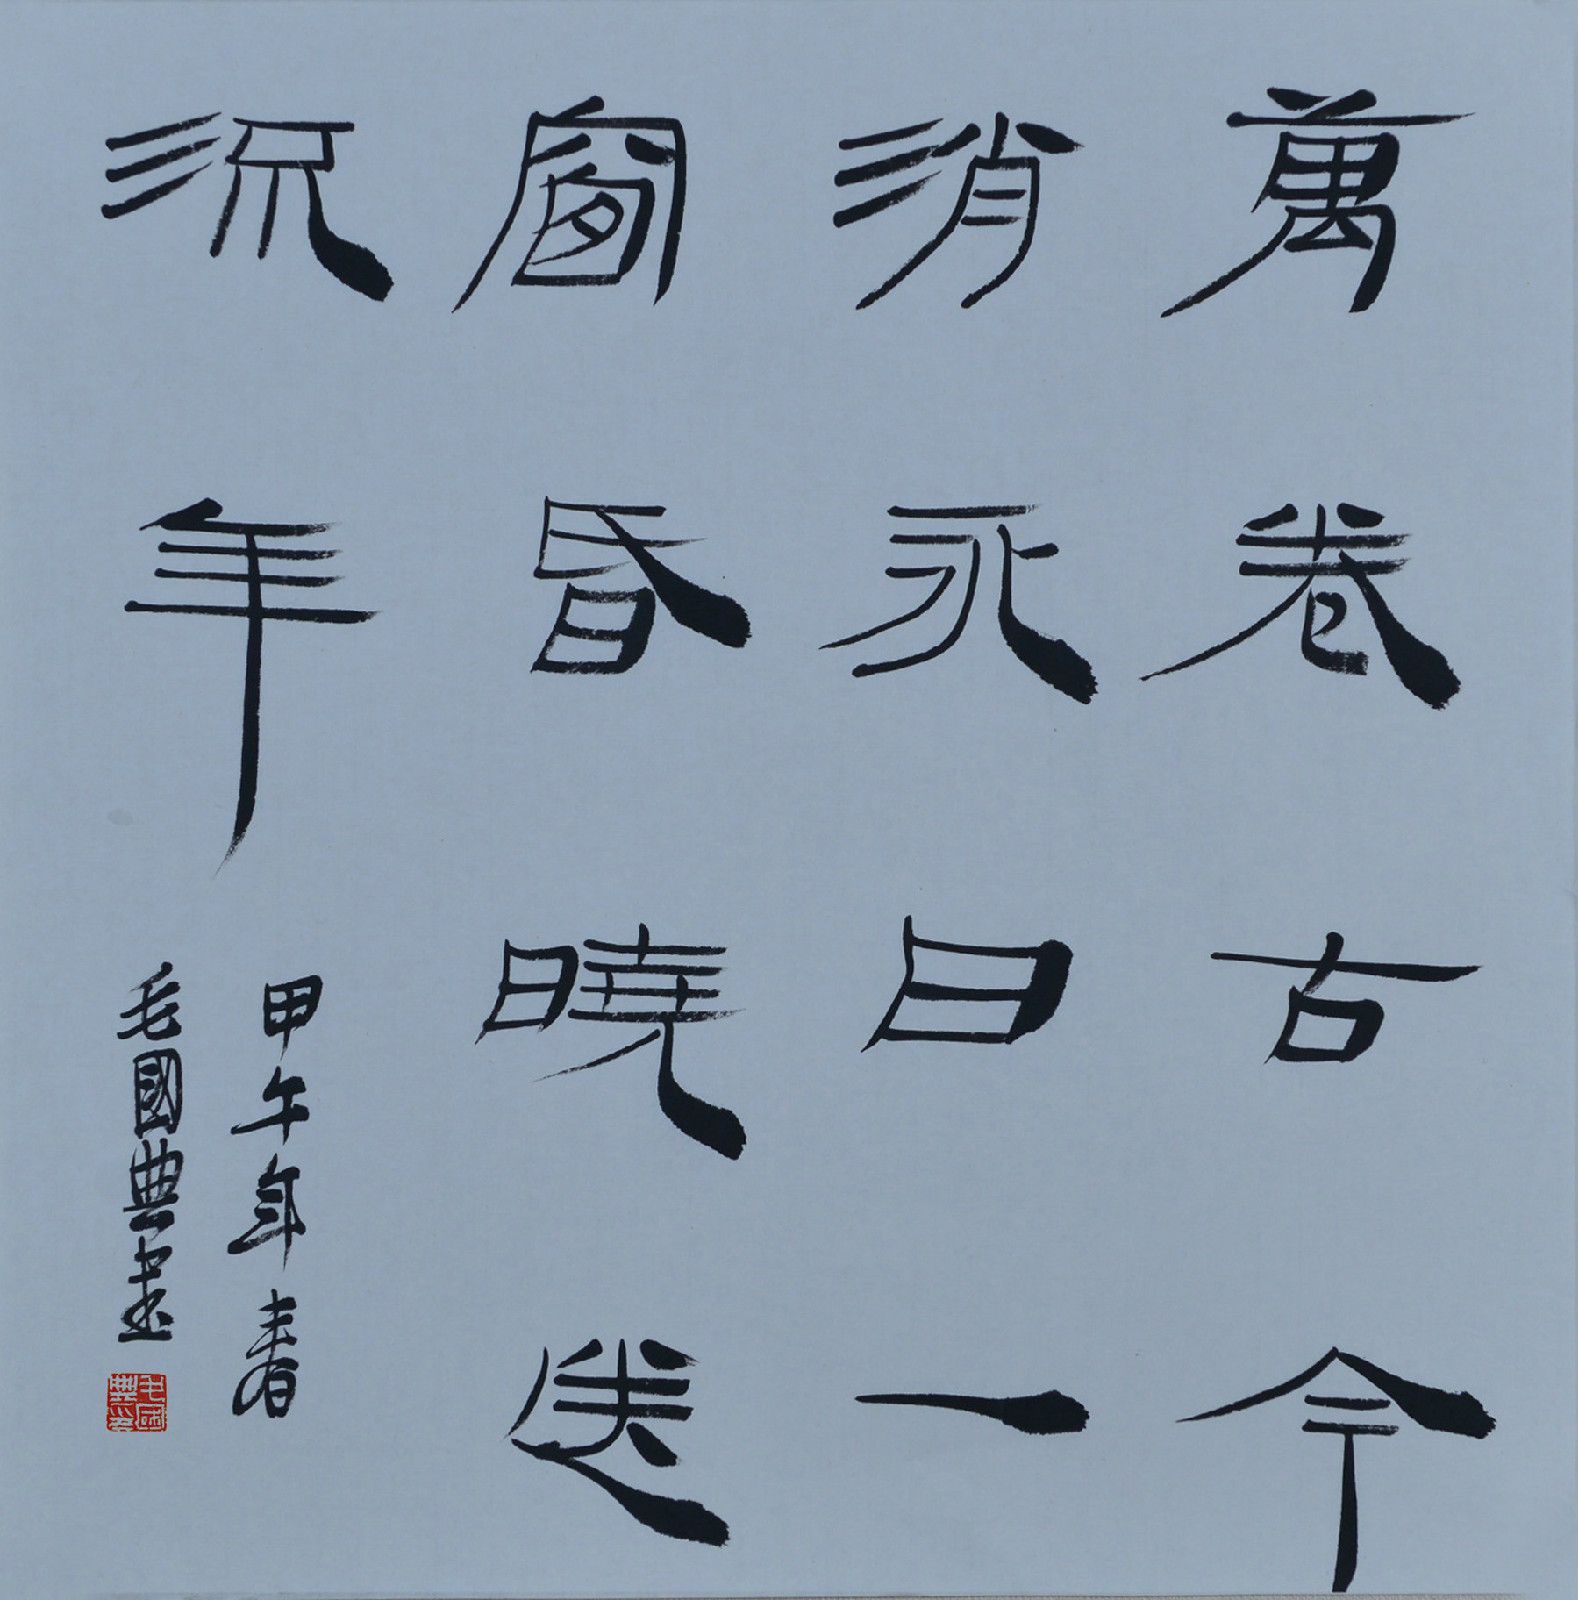 萬卷古今
消永日一
窗昏曉送
流年
甲午年春
毛國典書
毛國
典印